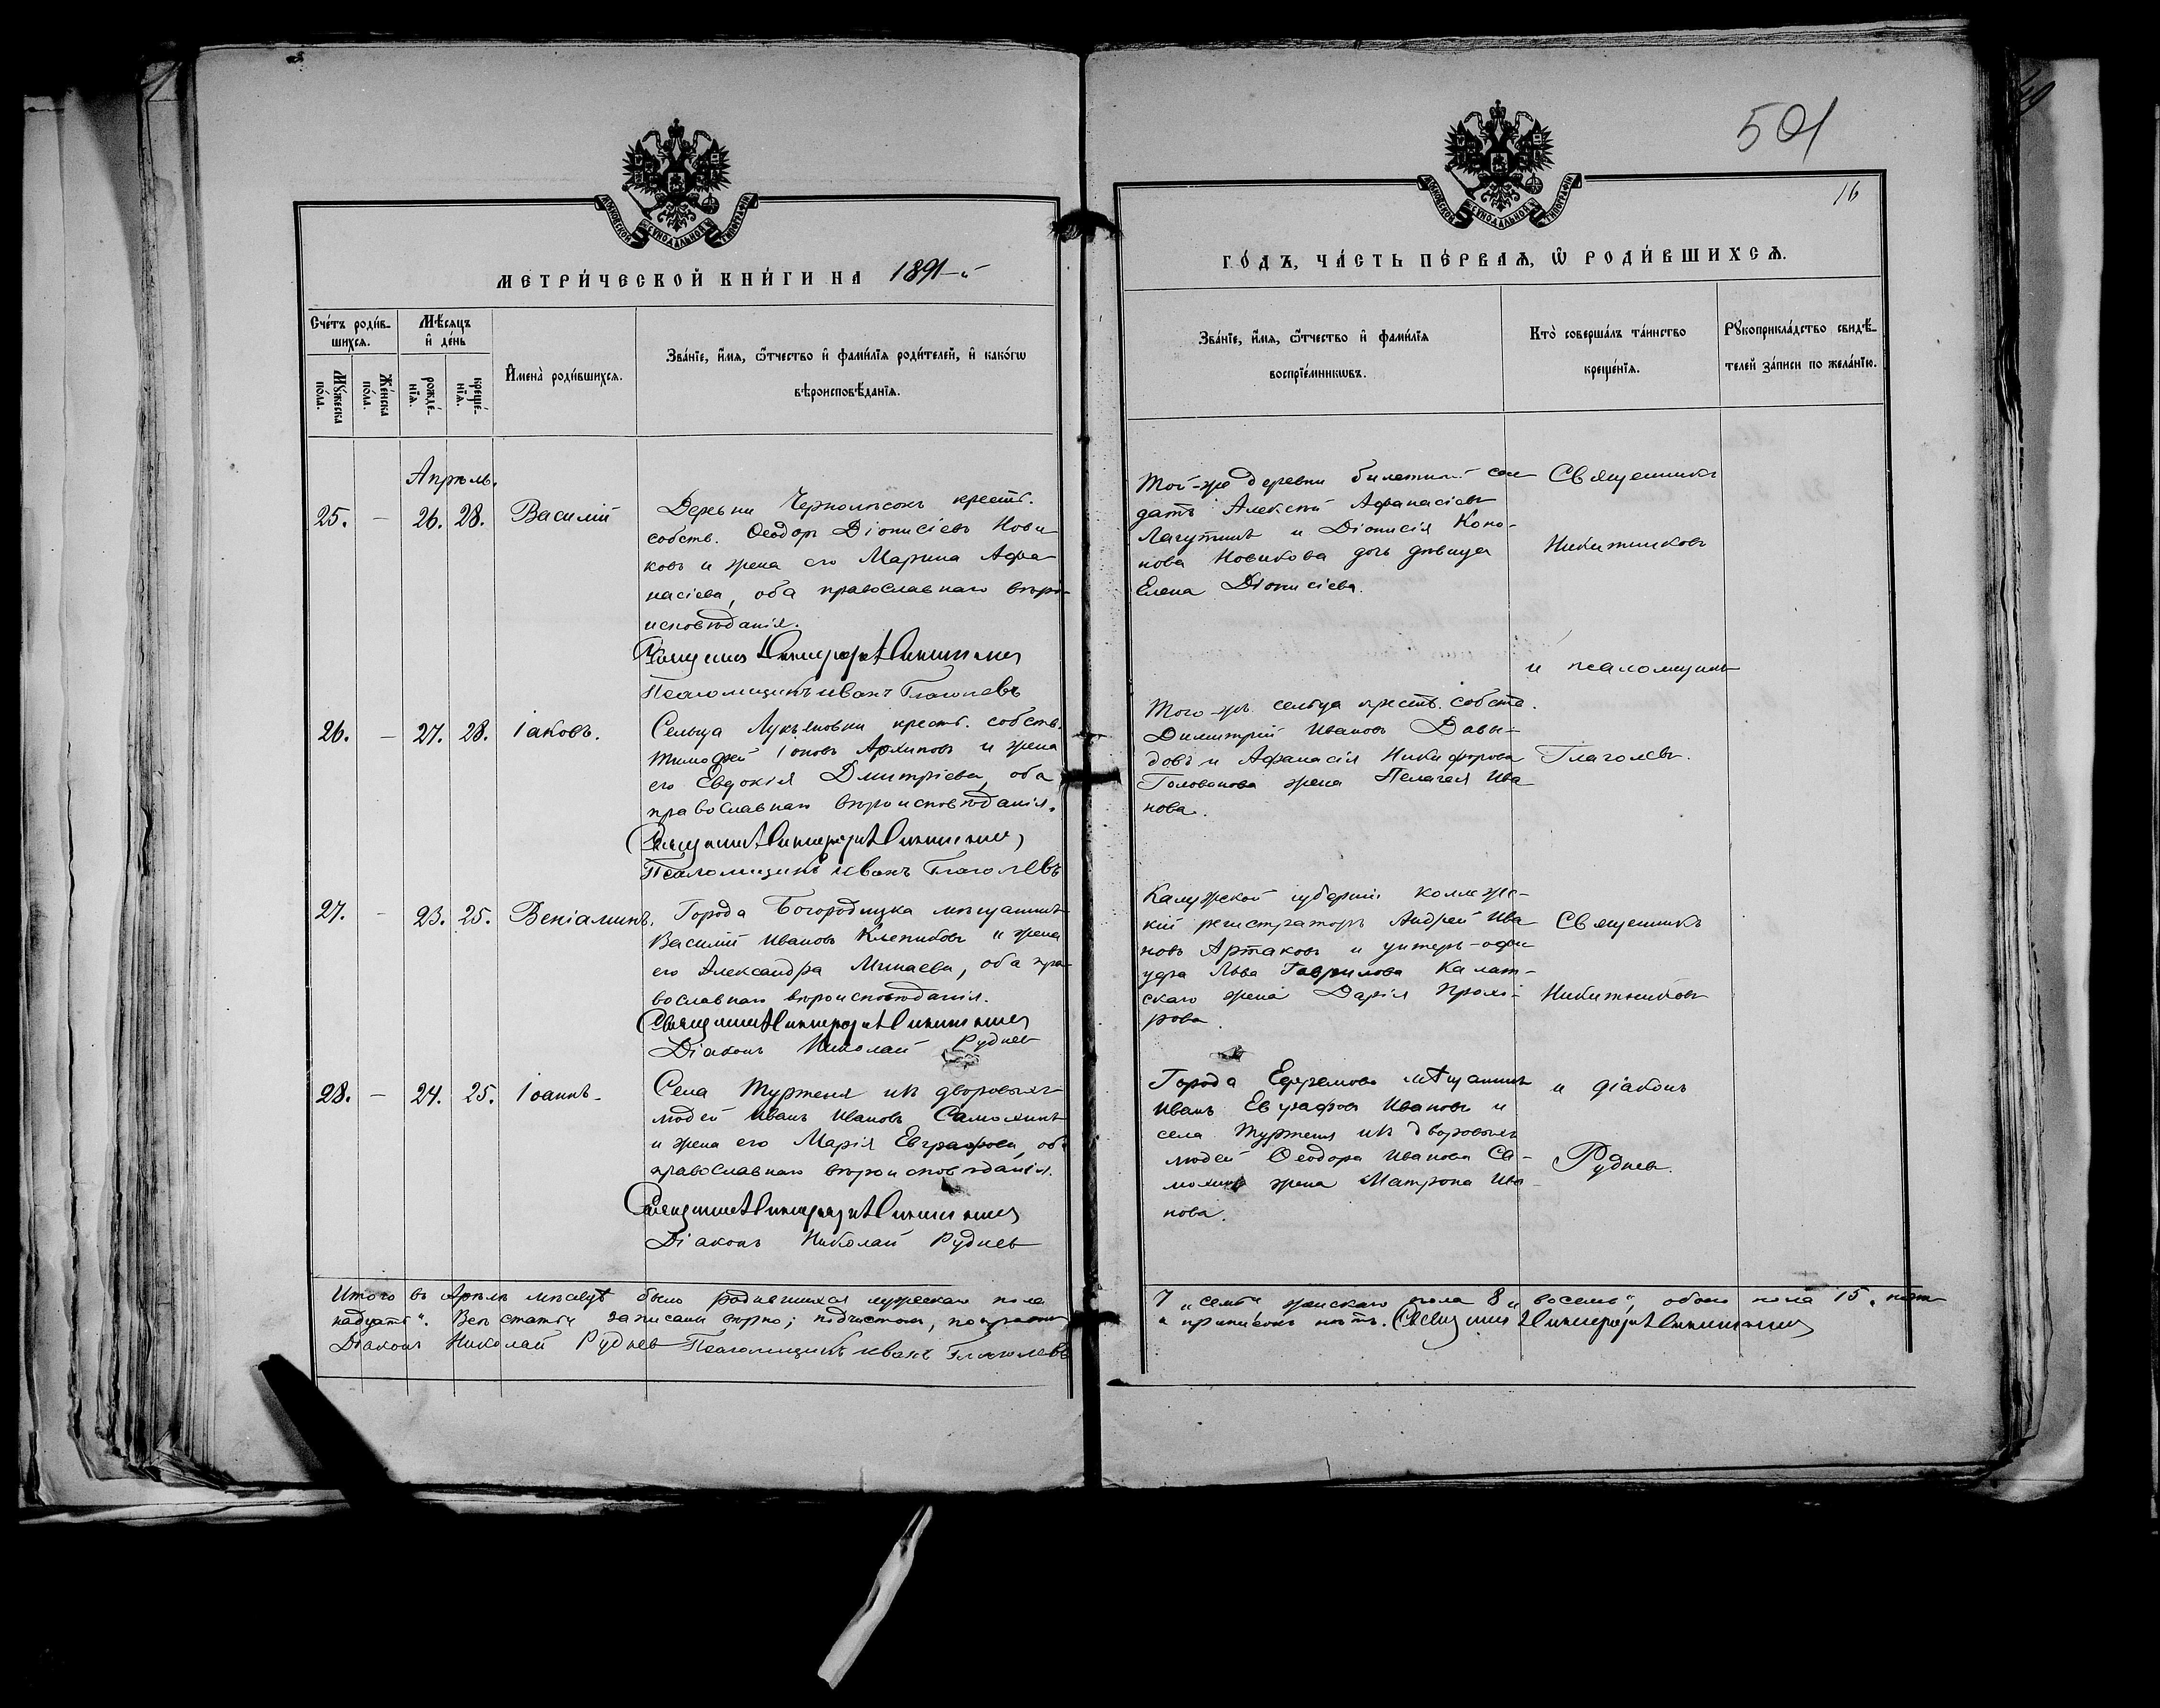 501
16
МОСКОВСКОЙ СѴНОДАЛЬНОЙ ТИПОГРАФІИ
МОСКОВСКОЙ СѴНОДАЛЬНОЙ ТИПОГРАФІИ
МЕТРИ́ЧЕСКОЙ КНИ́ГИ НА 1891-й
Сче́тъ роди́в-
шихсѧ.
Мѣ́сѧцъ
и҆ де́нь
Мꙋ́жеска
по́ла.
Же́нска
по́ла.
рожде́-
нїѧ.
креще́-
нїѧ.
И҆мена̀ роди́вшихсѧ.
Зва́нїе, и҆́мѧ, ѻ҆́тчество и҆ фами́лїѧ роди́телей, и҆ како́гѡ
вѣроисповѣ́данїѧ.
Апрѣль.
25. - 26. 28. Василій
Деревни Чернолѣсокъ крест.
собств. Ѳеодоръ Діонисіевъ Нови-
ковъ и жена его Марина Афа-
насіева, оба православнаго вѣро-
исповѣданія.
Псаломщикъ Иванъ Глаголевъ
26. - 27. 28. Іаковъ.
Сельца Лукьяновки крест. собств.
Тимофей Іоновъ Архиповъ и жена
его Евдокія Дмитріева, оба
православнаго вѣроисповѣданія.
Псаломщикъ Иванъ Глаголевъ
27. - 23. 25. Веніаминъ.
Города Богородицка мѣщанинъ
Василій Ивановъ Клепиковъ и жена
его Александра Минаева, оба пра-
вославнаго вѣроисповѣданія.
Діаконъ Николай Рудневъ
28. - 24. 25. Іоаннъ.
Села Турженя изъ дворовыхъ
людей Иванъ Ивановъ Самохинъ
и жена его Марія Евграфова, оба
православнаго вѣроисповѣданія.
Діаконъ Николай Рудневъ
Итого въ Апрѣлѣ мѣсяцѣ было родившихся мужескаго пола
надцать". Всѣ статьи записаны вѣрно; подчистокъ, поправокъ
Діаконъ Николай Рудневъ Псаломщикъ Иванъ Глаголевъ
ГО́ДЪ, ЧА́СТЬ ПЕ́РВАѦ, Ѡ҆ РОДИ́ВШИХСѦ.
Зва́нїе, и҆́мѧ, ѻ҆́тчество и҆ фами́лїѧ
воспрїе́мникѡвъ.
Кто̀ соверша́лъ та́инство
креще́нїѧ.
Рꙋкоприкла́дство свидѣ́-
телей за́писи по жела́нїю.
Той-же деревни билетный сол-
датъ Алексѣй Афанасіевъ
Лагутинъ и Діонисія Коно-
нова Новикова дочь дѣвица
Елена Діонисіева.
Священникъ
Никитниковъ
и псаломщикъ
Того-же сельца крест. собств.
Димитрій Ивановъ Давы-
довъ и Афанасія Никифорова
Голованова жена Пелагея Ива-
нова.
Глаголевъ.
Калужской губерніи коллежс-
кій регистраторъ Андрей Ива-
новъ Артаковъ и унтеръ-офи-
цера Льва Гаврилова Калат-
скаго жена Дарія Прохо-
рова.
Священникъ
Никитниковъ
Города Ефремова мѣщанинъ
Иванъ Евграфовъ Ивановъ и
села Турженя изъ дворовыхъ
людей Ѳеодора Иванова Са-
мохина жена Матрона Ива-
нова.
и діаконъ
Рудневъ.
7 "семь", женскаго пола 8 "восемь", обоего пола 15 "пят-
и приписокъ нѣтъ.